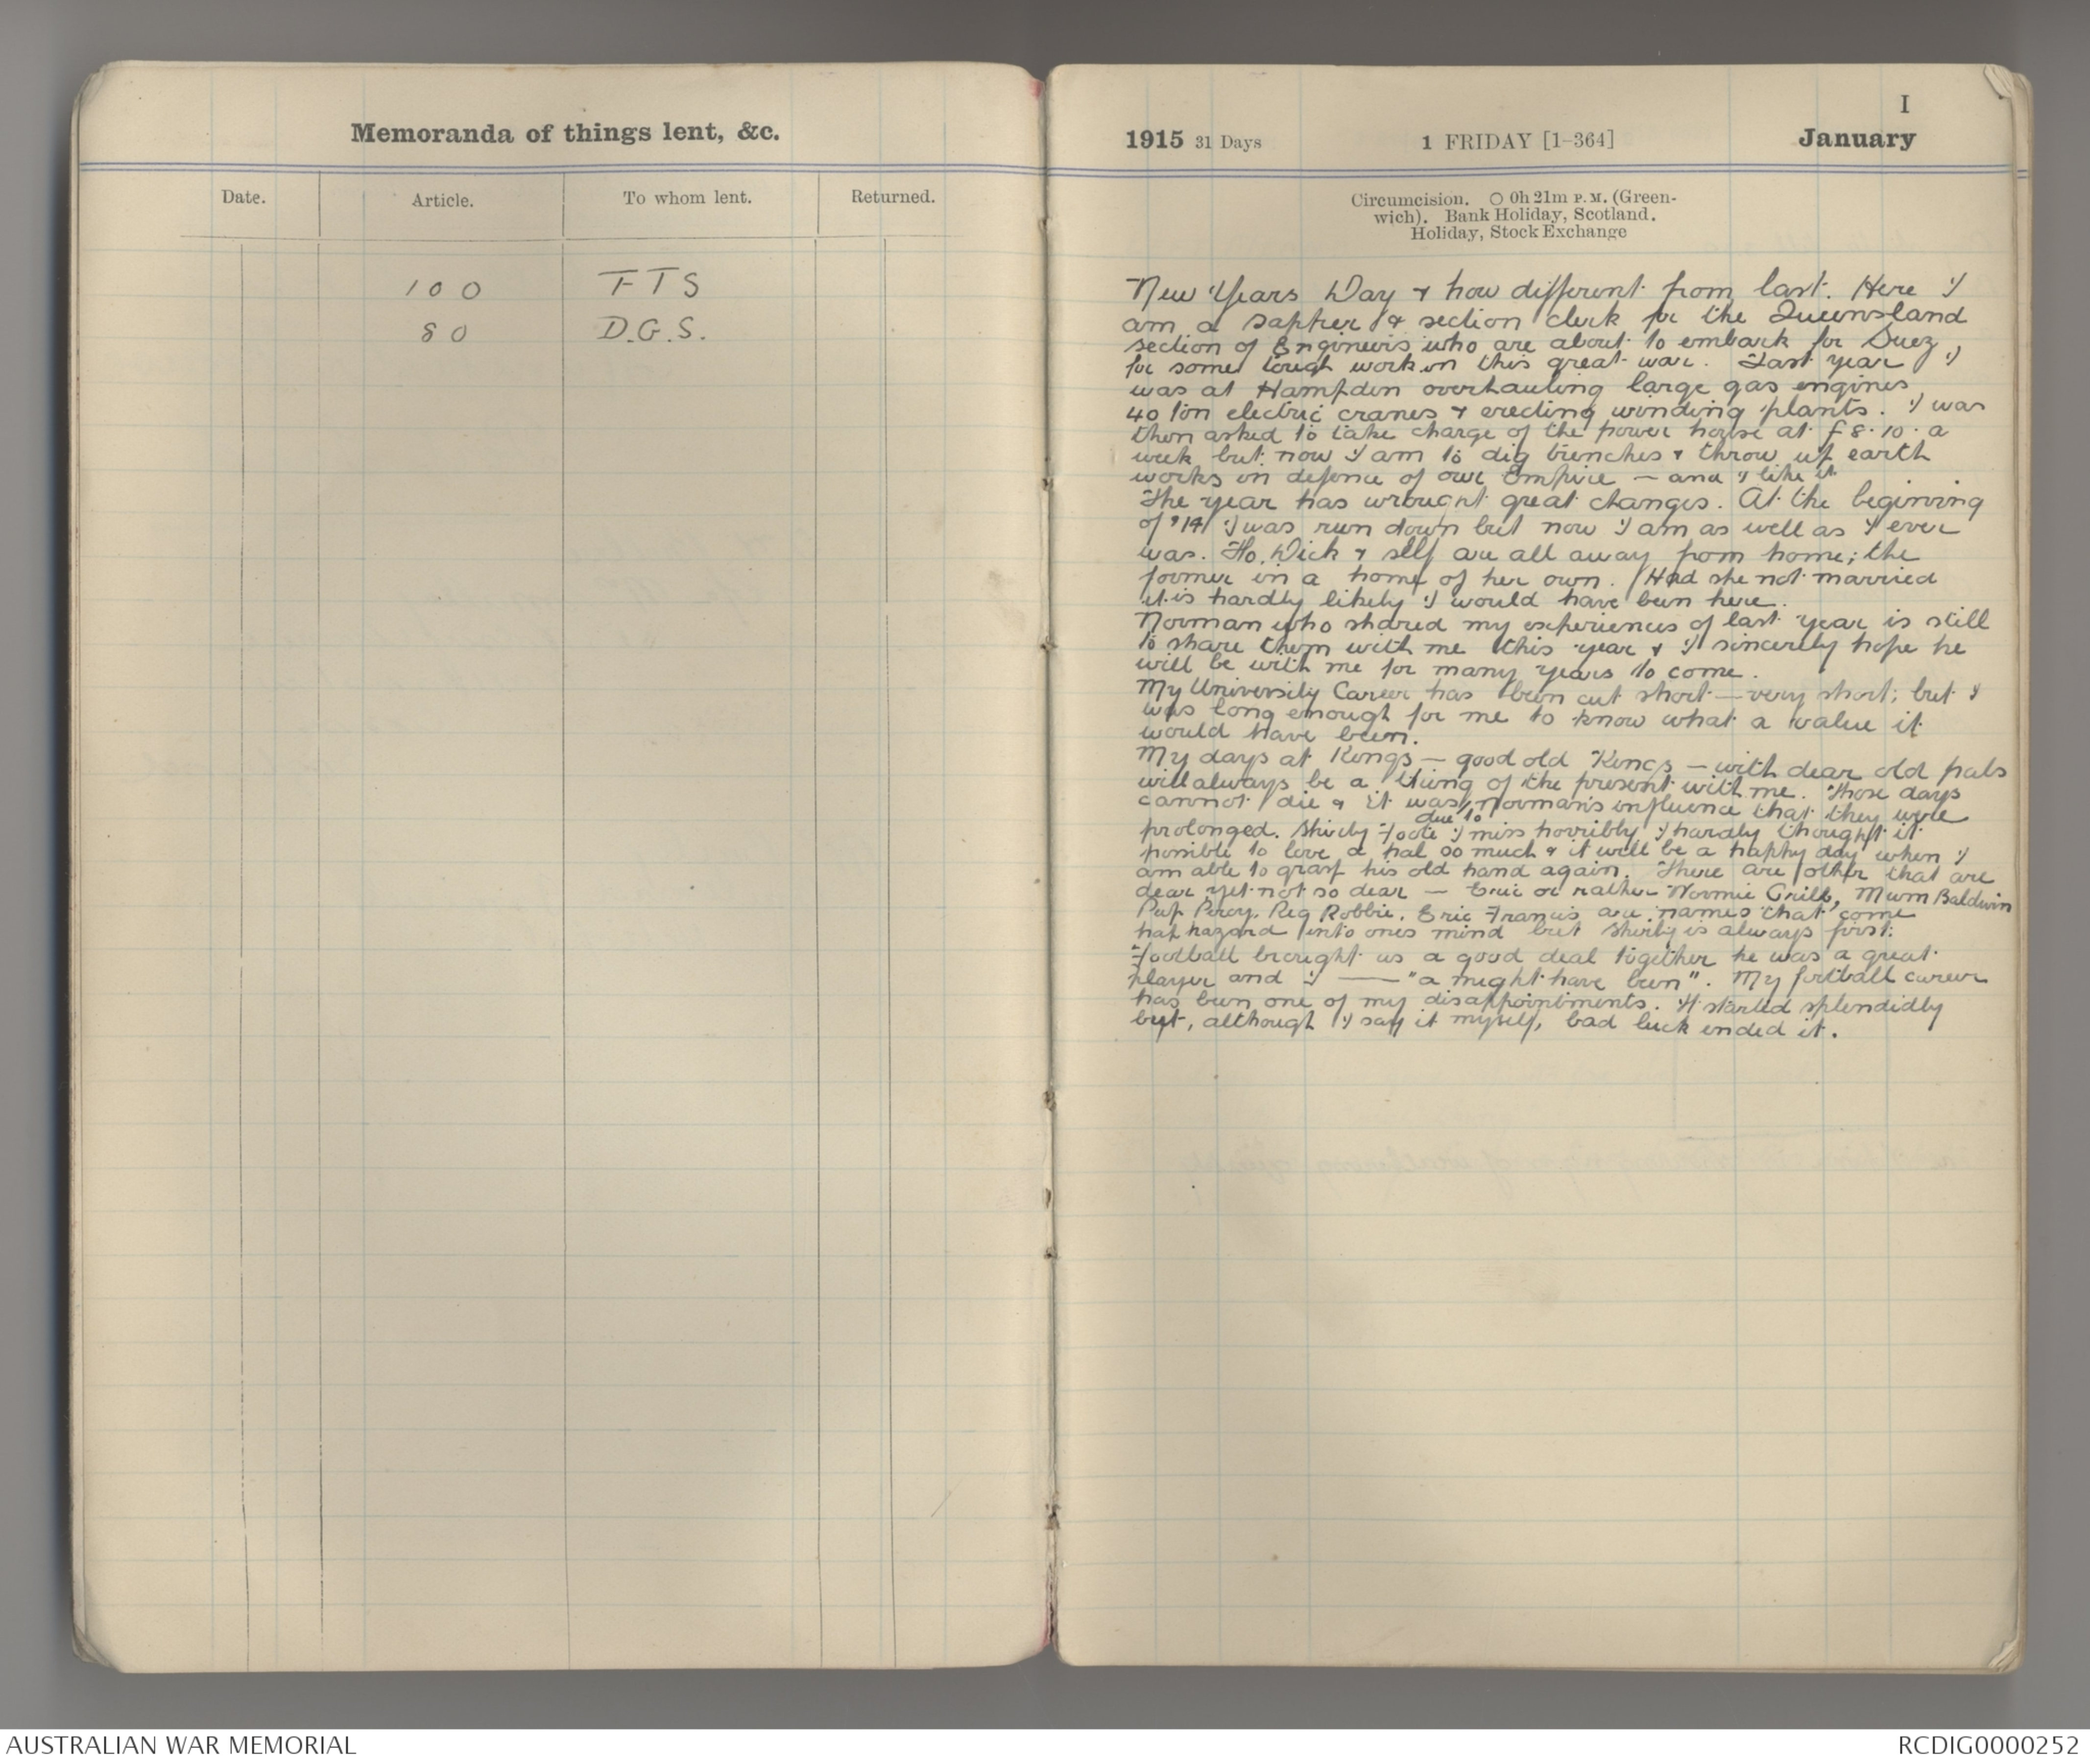 Memoranda of things lent, &c.
Date. Article. To whom lent. Returned.
100 FTS
80 D.G.S.
I
1915 31 Days 1 FRIDAY [1-364] January
Circumcision. ○ 0h 21m P.M. (Green-
wich). Bank Holiday, Scotland.
Holiday, Stock Exchange
New Years Day & how different from last. Here I
am a sapper & section clerk for the Queensland
section of Engineers who are about to embark for Suez
for some tough work in this great war. Last year I
was at Hampden overhauling large gas engines,
40 ton electric cranes & erecting winding plants. I was
then asked to take charge of the power house at £8.10. a
week but now I am to dig trenches & throw up earth
works in defence of our Empire — and I like it
The year has wrought great changes. At the begining
of '14 I was run down but now I am as well as I ever
was. Flo, Dick & self are all away from home; the
former in a home of her own. Had she not married
it is hardly likely I would have been here.
Norman who shared my experiences of last year is still
to share them with me this year & I sincerely hope he
will be with me for many years to come.
My University Career has been cut short — very short; but I
was long enough for me to know what a value it
would have been.
My days at Kings — good old Kings — with dear old pals
will always be a thing of the present with me. Those days
cannot die & it was Norman's influence that they were
due to
prolonged. Shirly Foote I miss horribly I hardly thought it
possible to love a pal so much & it will be a happy day when I
am able to grasp his old hand again. There are other that are
dear yet not so dear — Eric or rather Normie Grill, Mum Baldwin
Pup Percy, Reg Robbie, Eric Francis are names that come
hap hazard into ones mind but Shirly is always first:
Football brought us a good deal together he was a great
player and I —— "a might have been". My football career
has been one of my disappointments. It started splendidly
but, although I say it myself, bad luck ended it.
AUSTRALIAN WAR MEMORIAL RCDIG0000252